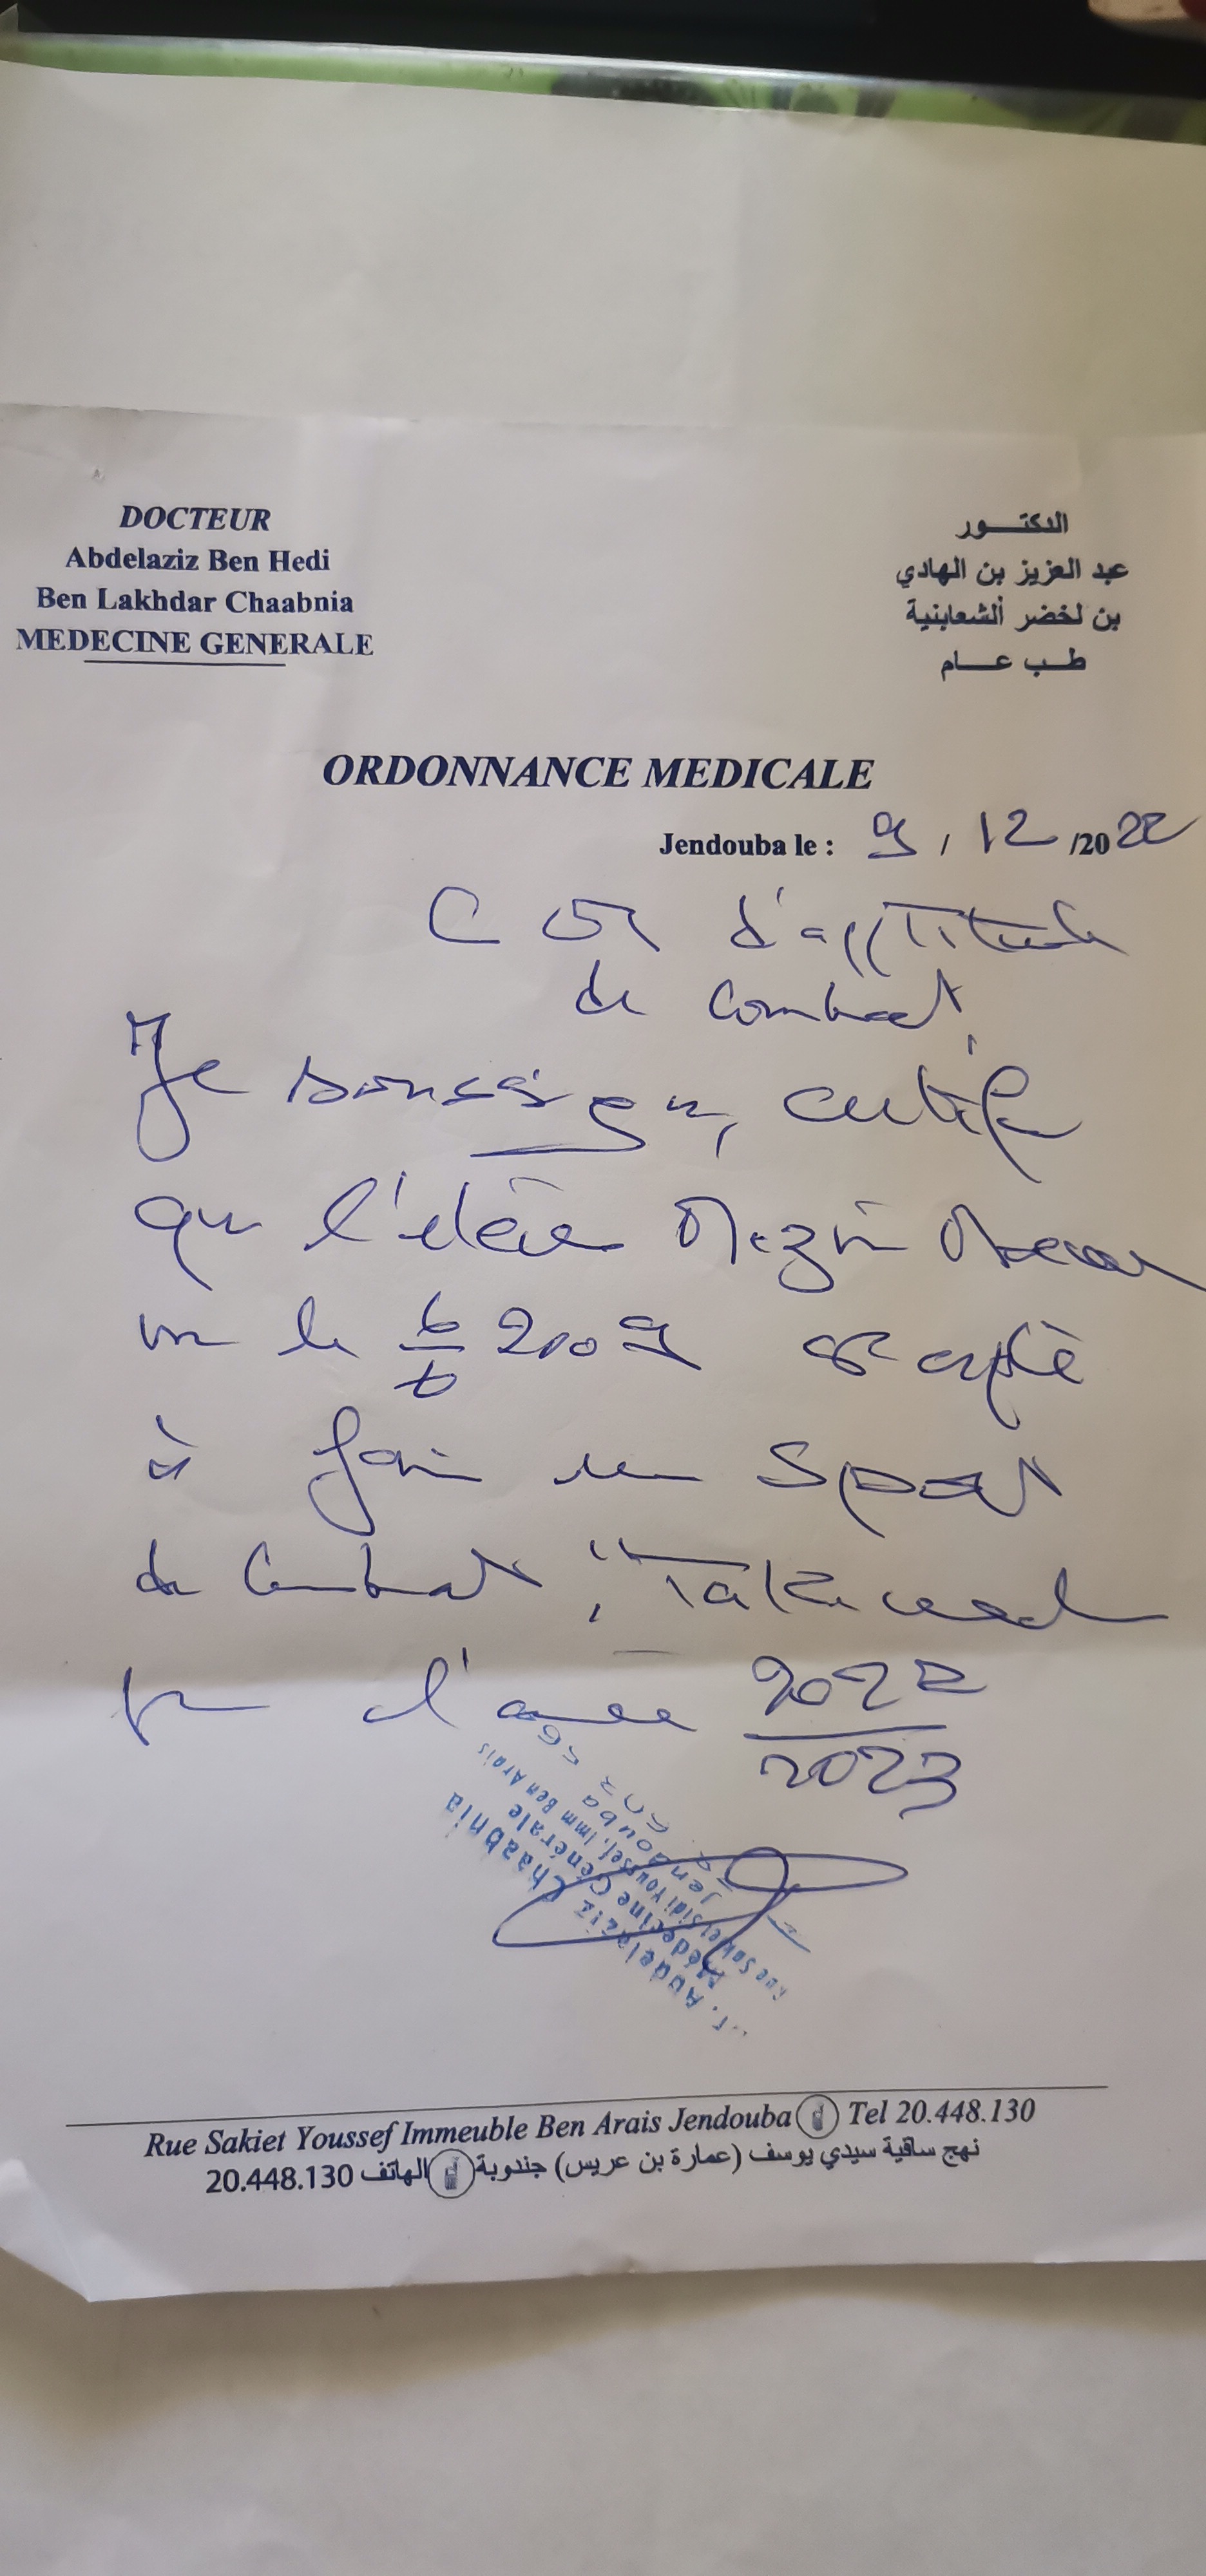 DOCTEUR
Abdelaziz Ben Hedi
Ben Lakhdar Chaabnia
MEDECINE GENERALE
الدكتـــور
عبد العزيز بن الهادي
بن لخضر ألشعابنية
طـب عـــام
ORDONNANCE MEDICALE
Jendouba le : 9 / 12 /2022
d'apptitude
de combat,
Je soussigné, certifie
que l'élève
le 6/6 2009 est apte
à faire un sport
de Combat, "
pr l'année 2022/2023
Abdelaziz Chaabnia
Médecine Générale
Rue Sakiet Sidi Youssef, Imm Ben Arais
Jendouba
Rue Sakiet Youssef Immeuble Ben Arais Jendouba Tel 20.448.130
نهج ساقية سيدي يوسف (عمارة بن عريس) جندوبة الهاتف 20.448.130